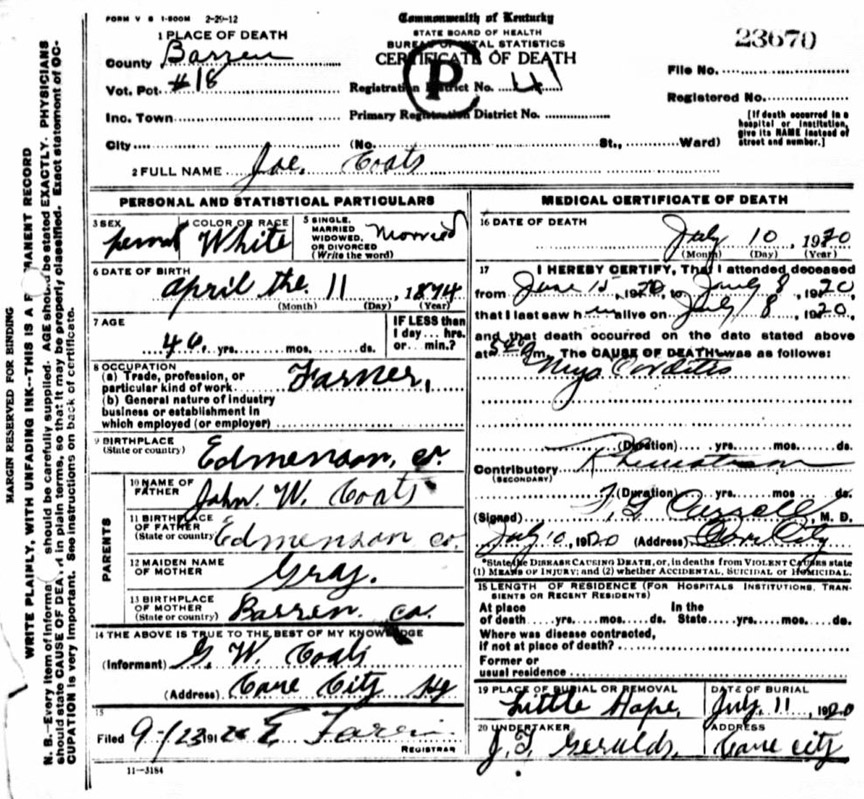 FORM V S 1-500M 2-29-12
Commonwealth of Kentucky
STATE BOARD OF HEALTH
BUREAU OF VITAL STATISTICS
CERTIFICATE OF DEATH
P
23670
1 PLACE OF DEATH
County Barren
Vot. Pct. #18
Inc. Town
City (No. St., Ward)
Registration District No. 41
Primary Registration District No.
File No.
Registered No.
[If death occurred in a
hospital or institution,
give its NAME instead of
street and number.]
2 FULL NAME Joe. Coats
PERSONAL AND STATISTICAL PARTICULARS
3 SEX
4 COLOR OR RACE White
5 SINGLE,
MARRIED
WIDOWED,
OR DIVORCED
(Write the word)
Married
6 DATE OF BIRTH
April the. 11, 1874
(Month) (Day) (Year)
7 AGE
46. yrs. mos. ds.
IF LESS than
1 day... hrs.
or... min.?
8 OCCUPATION
(a) Trade, profession, or
particular kind of work Farmer,
(b) General nature of industry
business or establishment in
which employed (or employer)
9 BIRTHPLACE
(State or country) Edmenson, co.
PARENTS
10 NAME OF
FATHER John. W. Coats
11 BIRTHPLACE
OF FATHER
(State or country) Edmenson co.
12 MAIDEN NAME
OF MOTHER Gray.
13 BIRTHPLACE
OF MOTHER
(State or country) Barren. co.
14 THE ABOVE IS TRUE TO THE BEST OF MY KNOWLEDGE
(Informant) G. W. Coats
(Address) Cave City Ky
15
Filed 9-/23 191
REGISTRAR
11-3184
MEDICAL CERTIFICATE OF DEATH
16 DATE OF DEATH
July 10, 1920
(Month) (Day) (Year)
17 I HEREBY CERTIFY, That I attended deceased
from June 15, 1920, to July 8, 1920,
that I last saw him alive on July 8, 1920,
and that death occurred on the date stated above
at m. The CAUSE OF DEATH was as follows:
Myo Corditis
(Duration) yrs. mos. ds.
Contributory Rheumatism
(SECONDARY)
(Duration) yrs. mos. ds.
(Signed) M. D.
July 10, 1920 (Address) Cave City
*State the DISEASE CAUSING DEATH, or, in deaths from VIOLENT CAUSES state
(1) MEANS OF INJURY; and (2) whether ACCIDENTAL, SUICIDAL or HOMICIDAL.
15 LENGTH OF RESIDENCE (FOR HOSPITALS INSTITUTIONS, TRANSIENTS OR RECENT RESIDENTS)
At place In the
of death yrs. mos. ds. State yrs. mos. ds.
Where was disease contracted,
if not at place of death?
Former or
usual residence
19 PLACE OF BURIAL OR REMOVAL
Little Hope,
DATE OF BURIAL
July. 11, 1920
20 UNDERTAKER
J. T. Geralds,
ADDRESS
Cave city
MARGIN RESERVED FOR BINDING
WRITE PLAINLY, WITH UNFADING INK--THIS IS A PERMANENT RECORD
N. B.--Every item of information should be carefully supplied. AGE should be stated EXACTLY. PHYSICIANS
should state CAUSE OF DEATH in plain terms, so that it may be properly classified. Exact statement of OC-
CUPATION is very important. See instructions on back of certificate.